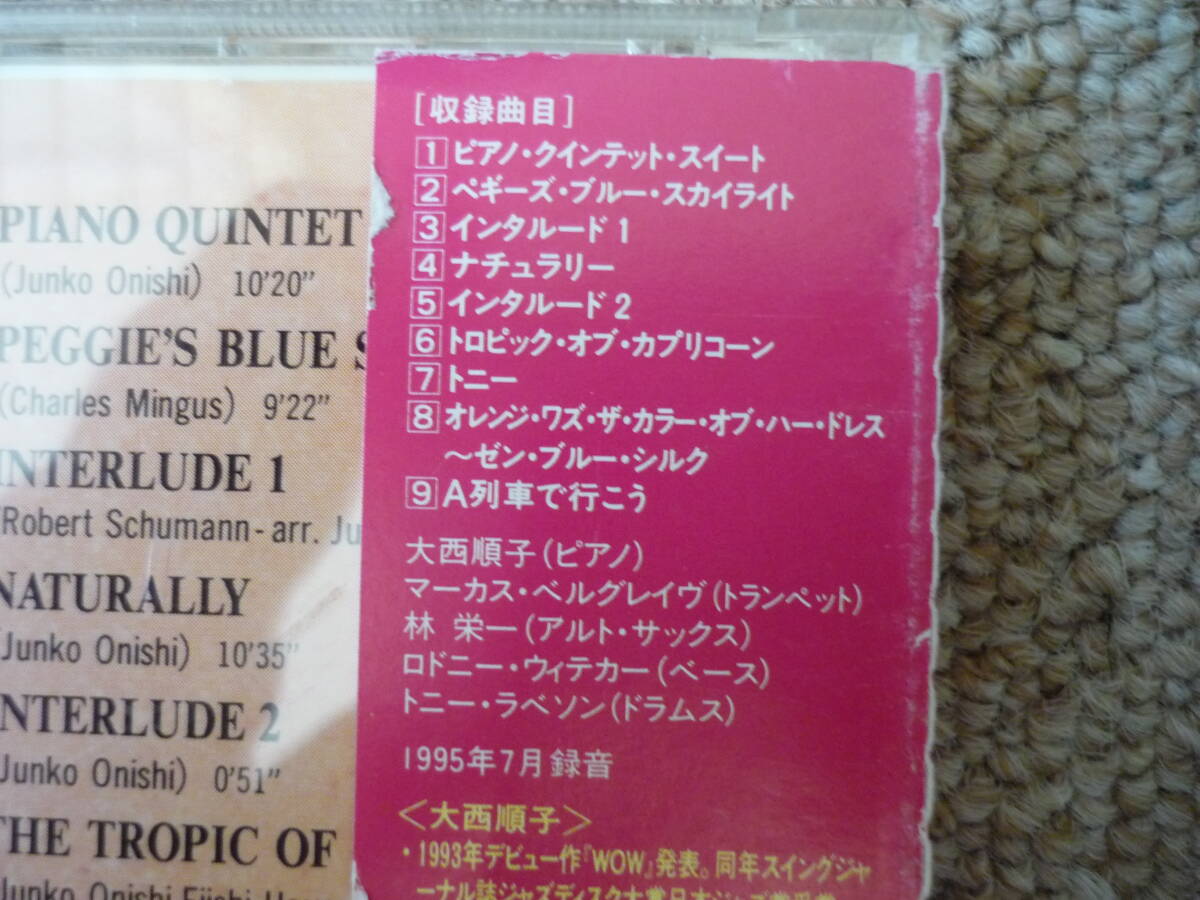 PIANO QUINTET
(Junko Onishi) 10'20"
PEGGIE'S BLUE S
(Charles Mingus) 9'22"
INTERLUDE 1
(Robert Schumann - arr. Ju
NATURALLY
(Junko Onishi) 10'35"
INTERLUDE 2
Junko Onishi) 0'51"
THE TROPIC OF
[収録曲目]
1 ピアノ・クインテット・スイート
2 ペギーズ・ブルー・スカイライト
3 インタルード1
4 ナチュラリー
5 インタルード2
6 トロピック・オブ・カプリコーン
7 トニー
8 オレンジ・ワズ・ザ・カラー・オブ・ハー・ドレス
～ゼン・ブルー・シルク
9 A列車で行こう
大西順子(ピアノ)
マーカス・ベルグレイヴ(トランペット)
林 栄一(アルト・サックス)
ロドニー・ウィテカー(ベース)
トニー・ラベソン(ドラムス)
1995年7月録音
<大西順子>
・1993年デビュー作『WOW』発表。同年スイングジャ
ーナル誌ジャズディスク大賞日本ジャズ賞受賞